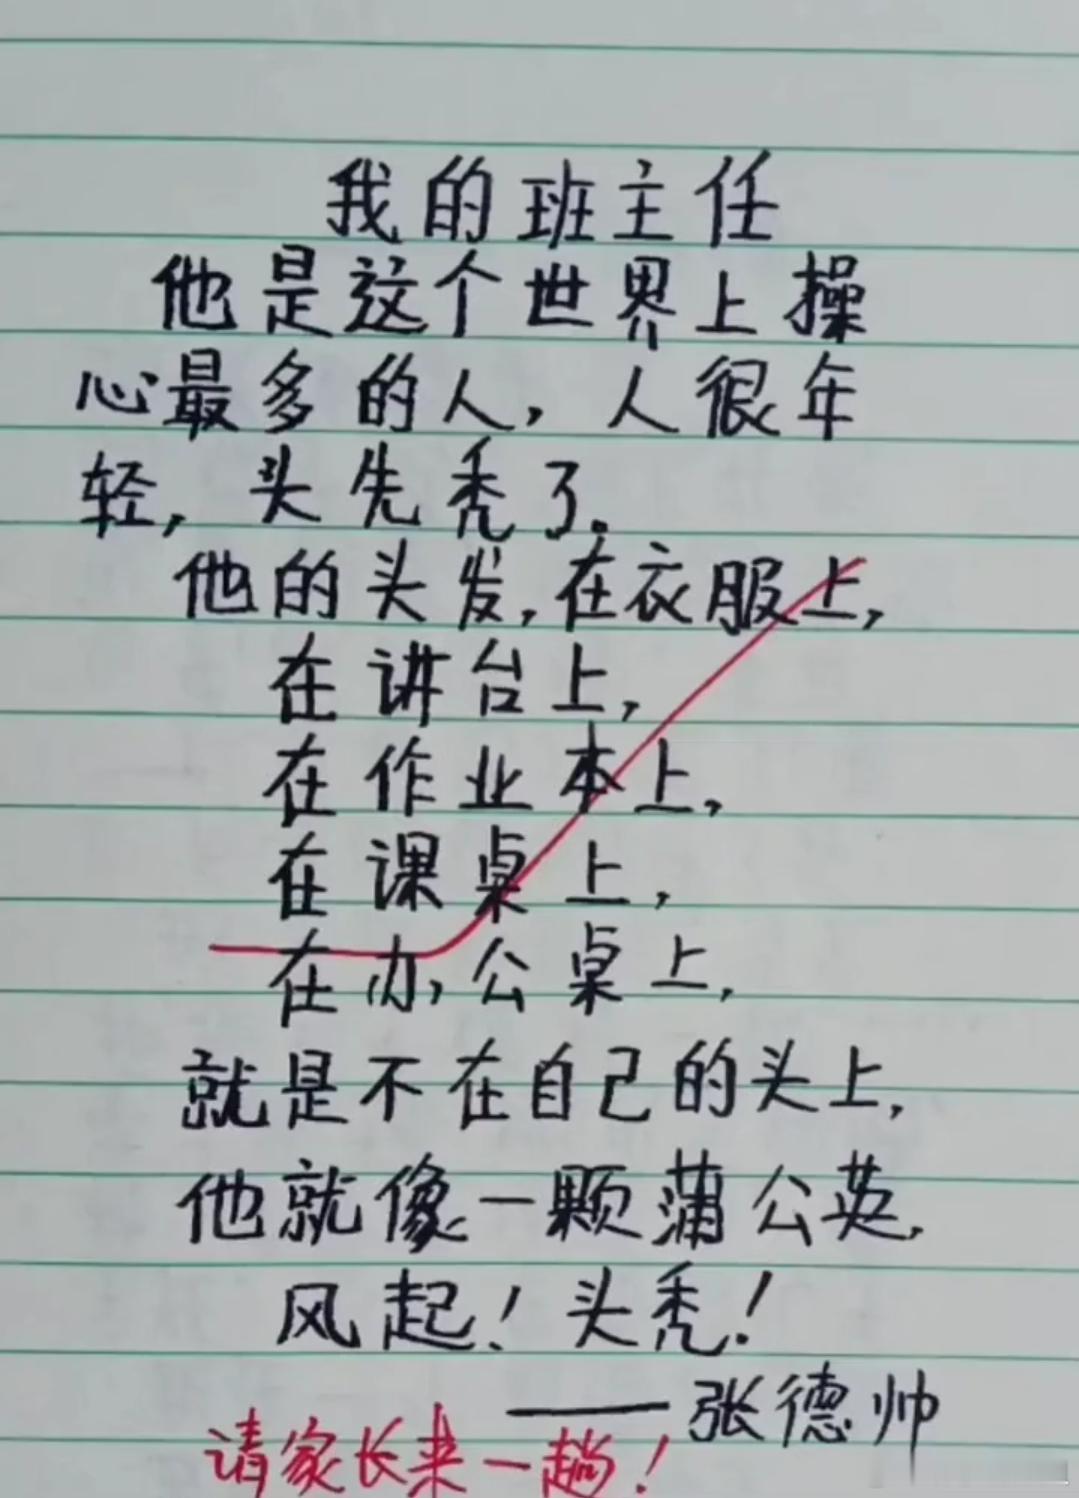 我的班主任
他是这个世界上操
心最多的人，人很年
轻，头先秃了。
他的头发，在衣服上，
在讲台上，
在作业本上，
在课桌上，
在办公桌上，
就是不在自己的头上，
他就像一颗蒲公英，
风起！头秃！
——张德帅
请家长来一趟！